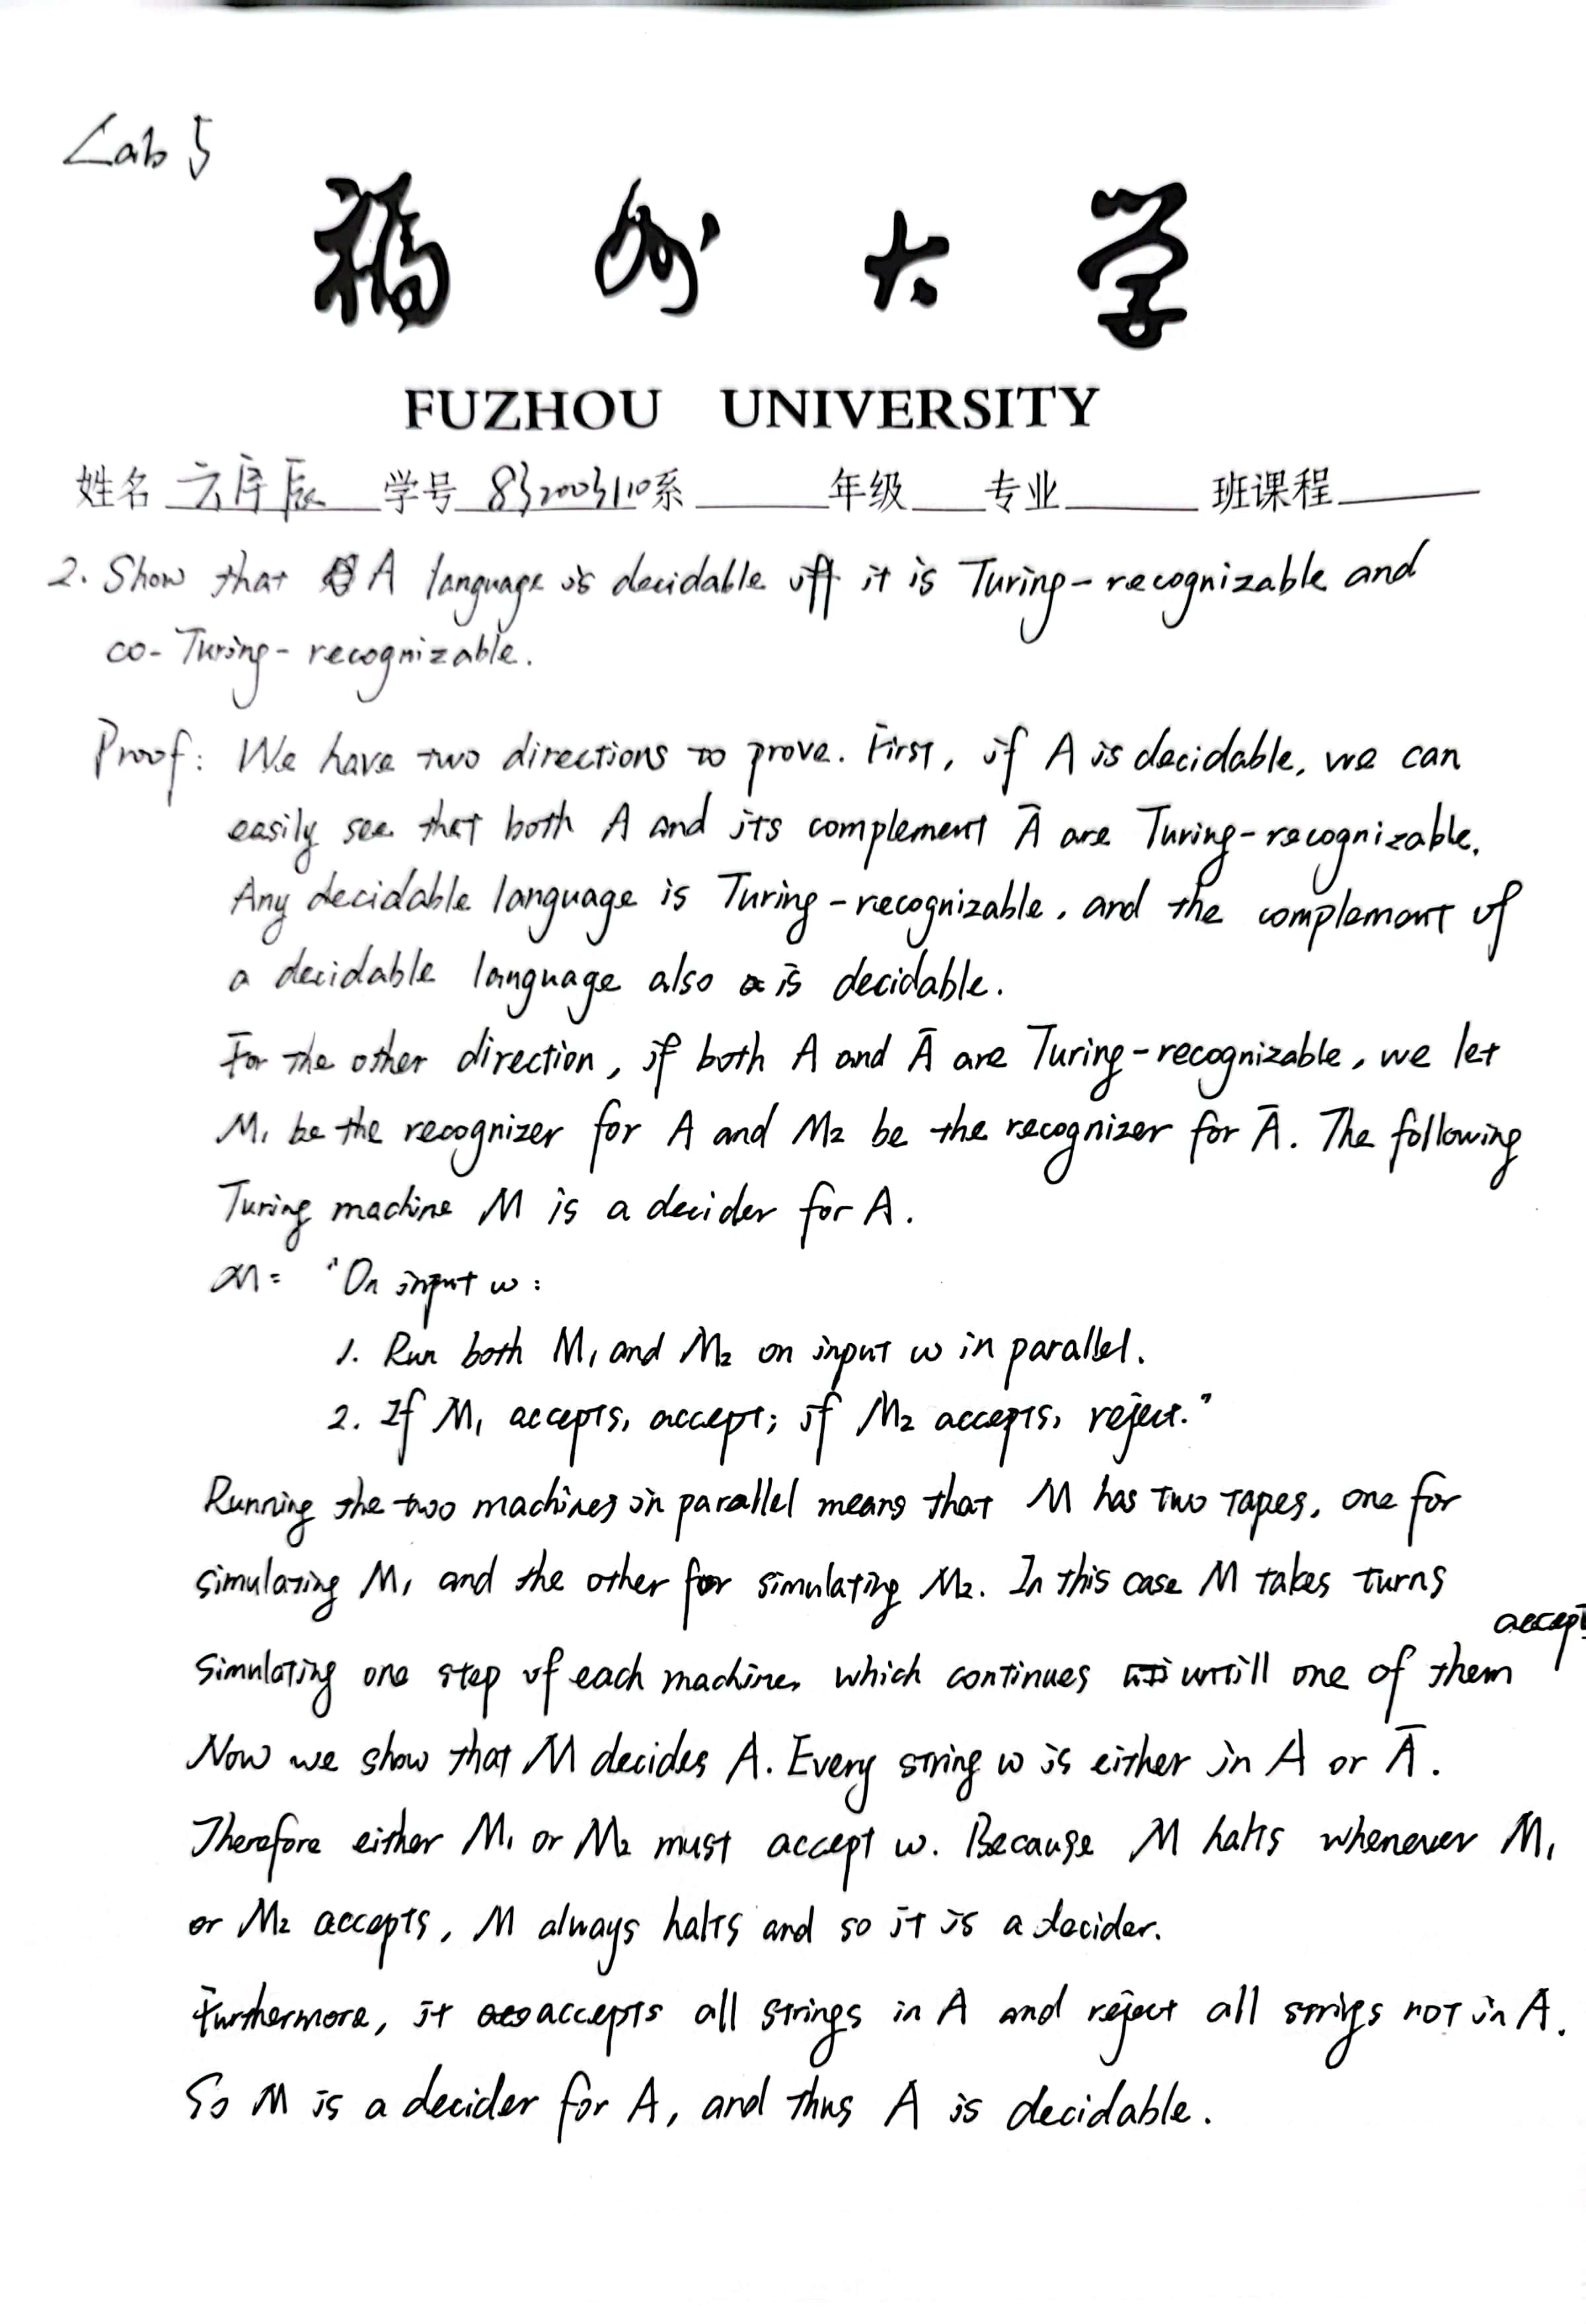 Lab 5
福州大学
FUZHOU UNIVERSITY
姓名 学号 832003110 系 年级 专业 班课程
2. Show that A language is decidable iff it is Turing-recognizable and
co-Turing-recognizable.
Proof: We have two directions to prove. First, if A is decidable, we can
easily see that both A and its complement Ā are Turing-recognizable.
Any decidable language is Turing-recognizable, and the complement of
a decidable language also is decidable.
For the other direction, if both A and Ā are Turing-recognizable, we let
M₁ be the recognizer for A and M₂ be the recognizer for Ā. The following
Turing machine M is a decider for A.
M = "On input w:
1. Run both M₁ and M₂ on input w in parallel.
2. If M₁ accepts, accept; if M₂ accepts, reject."
Running the two machines in parallel means that M has two tapes, one for
simulating M₁ and the other for simulating M₂. In this case M takes turns
simulating one step of each machine, which continues untill one of them accept
Now we show that M decides A. Every string w is either in A or Ā.
Therefore either M₁ or M₂ must accept w. Because M halts whenever M₁
or M₂ accepts, M always halts and so it is a decider.
Furthermore, it accepts all strings in A and reject all strings not in A.
So M is a decider for A, and thus A is decidable.